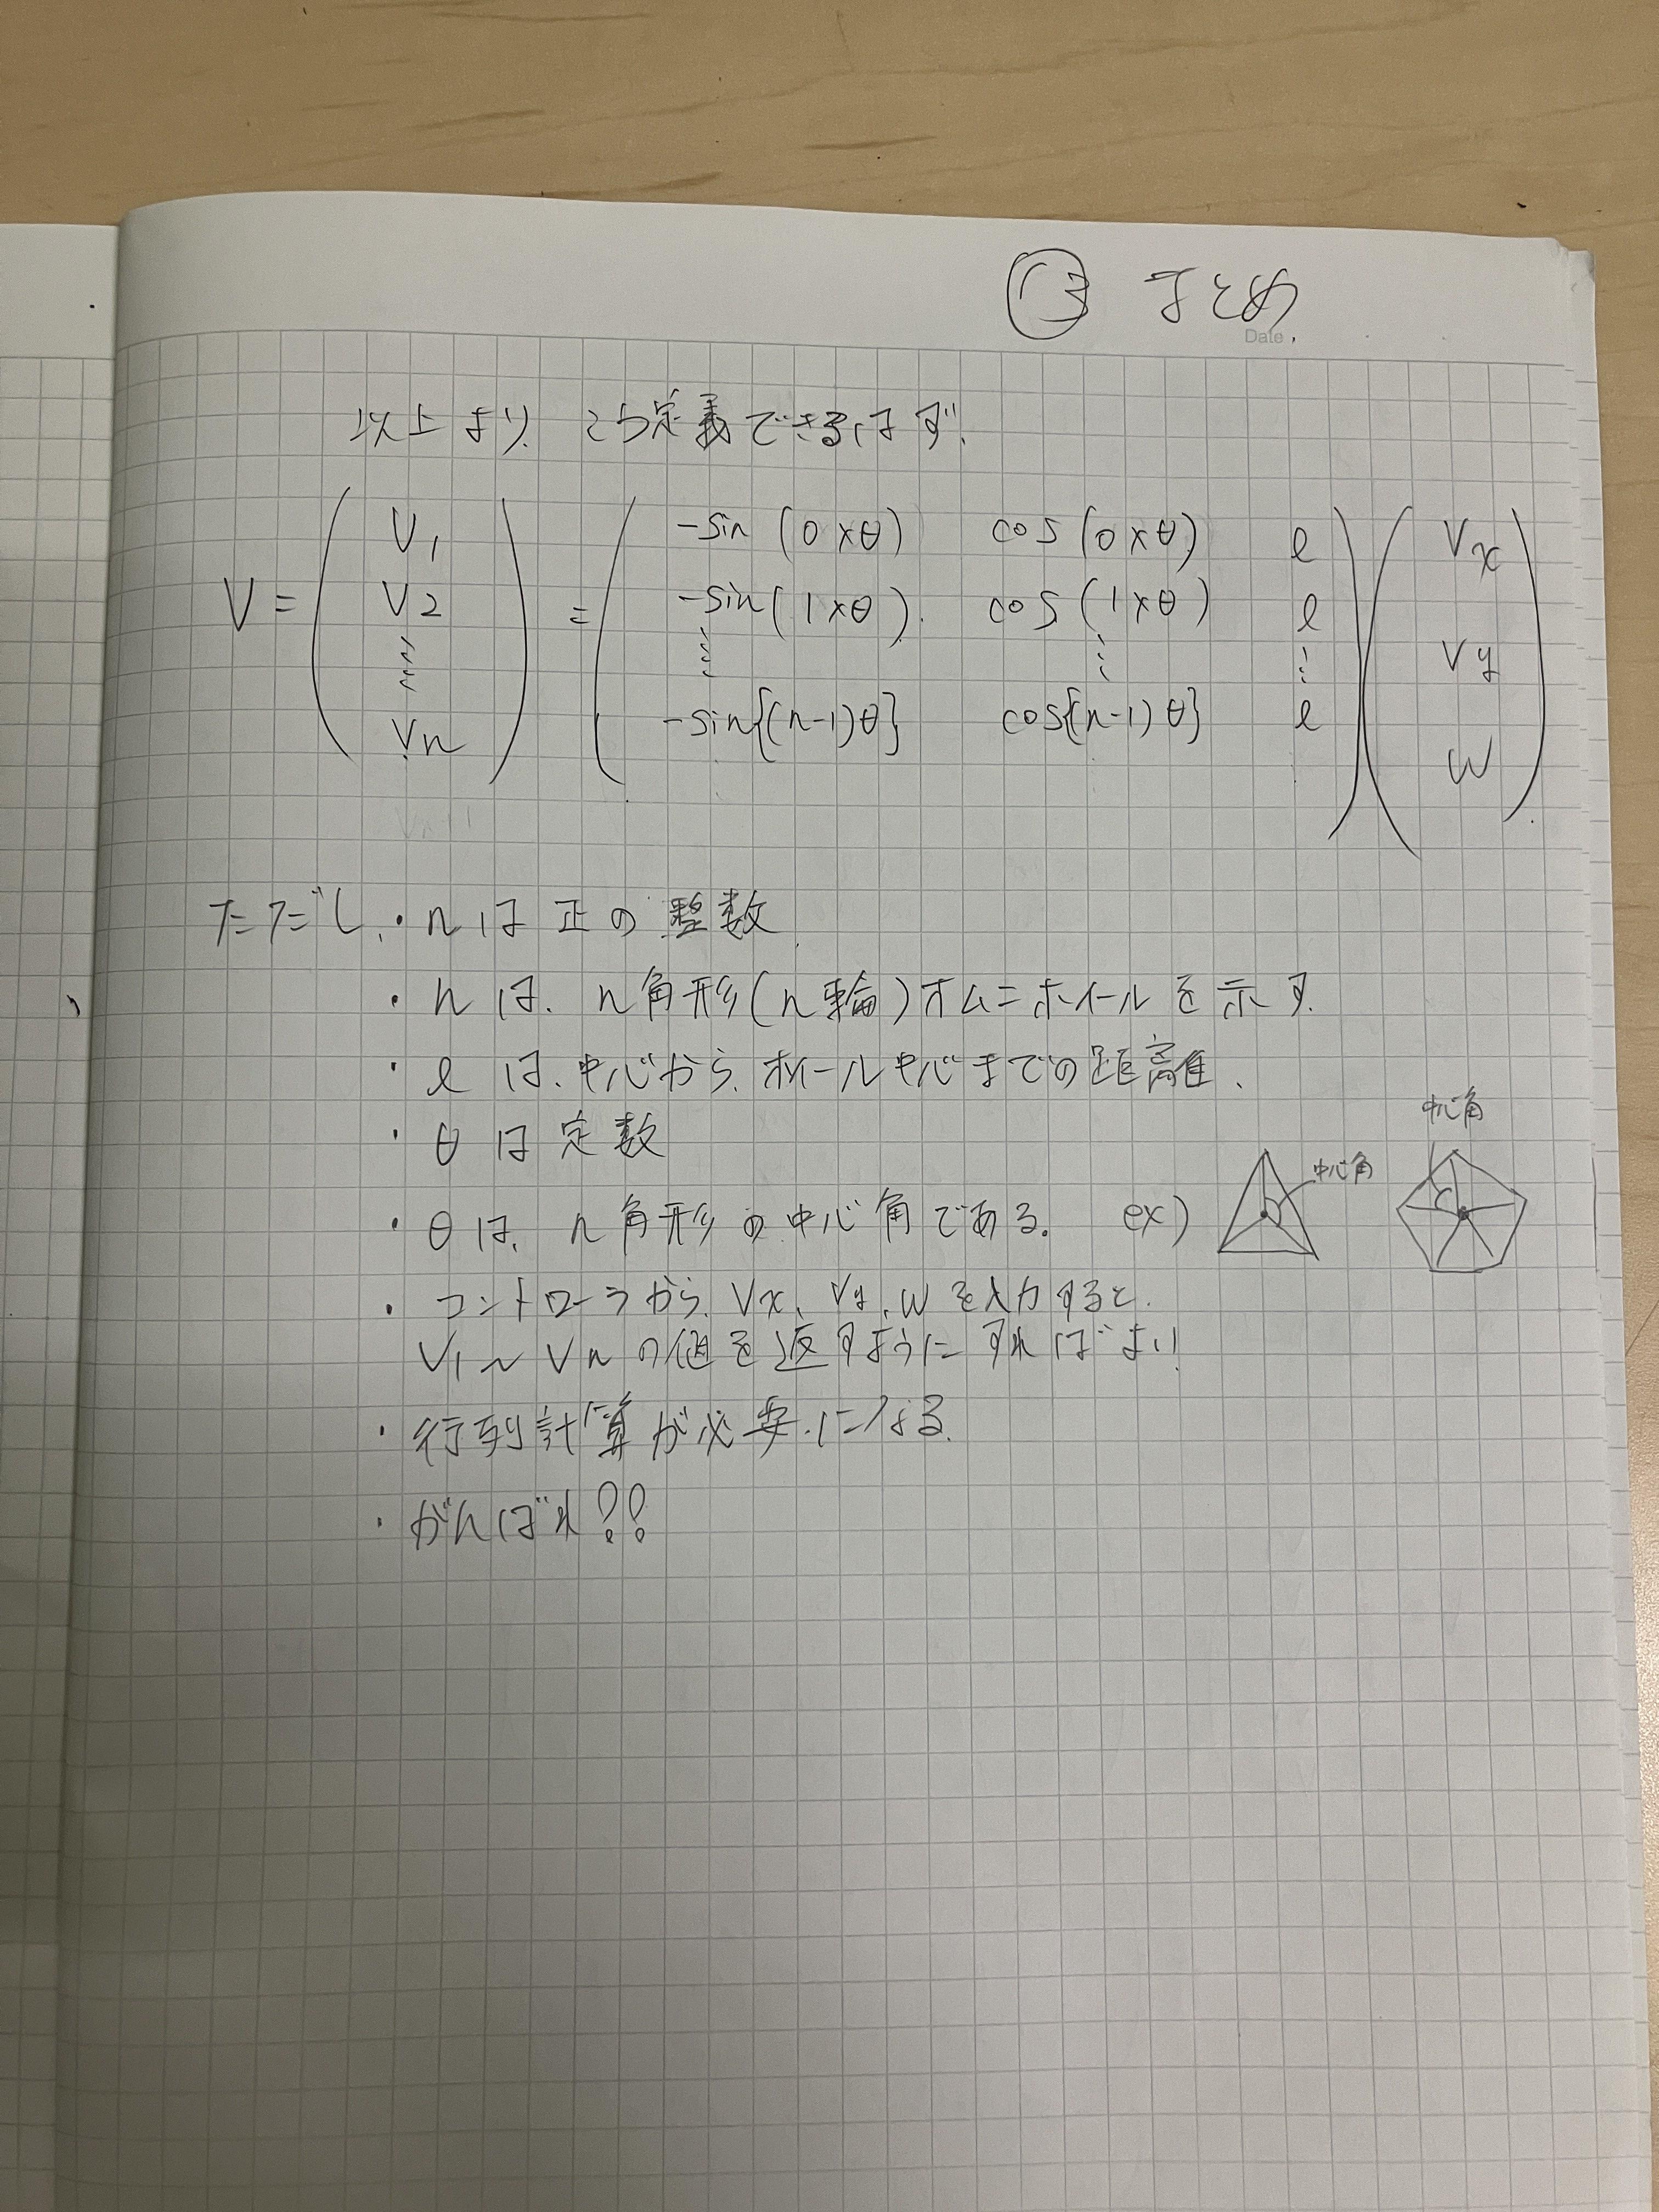 ③ まとめ
Date
以上より、こう定義できるはず、
V = ( V1 V2 ⋮ Vn ) = ( -sin (0×θ) cos (0×θ) l
-sin (1×θ) cos (1×θ) l
⋮ ⋮ ⋮
-sin{(n-1)θ} cos{(n-1)θ} l ) ( Vx Vy W )
ただし、・nは正の整数
・nは、n角形(n輪)オムニホイールを示す.
・lは、中心から、ホイール中心までの距離、
・θは定数
・θは、n角形の中心角である. ex) 中心角 中心角
・コントローラから、Vx、Vy、Wを入力すると、
V1~Vnの値を返すようにすればよい!
・行列計算が必要になる.
・がんばれ!!